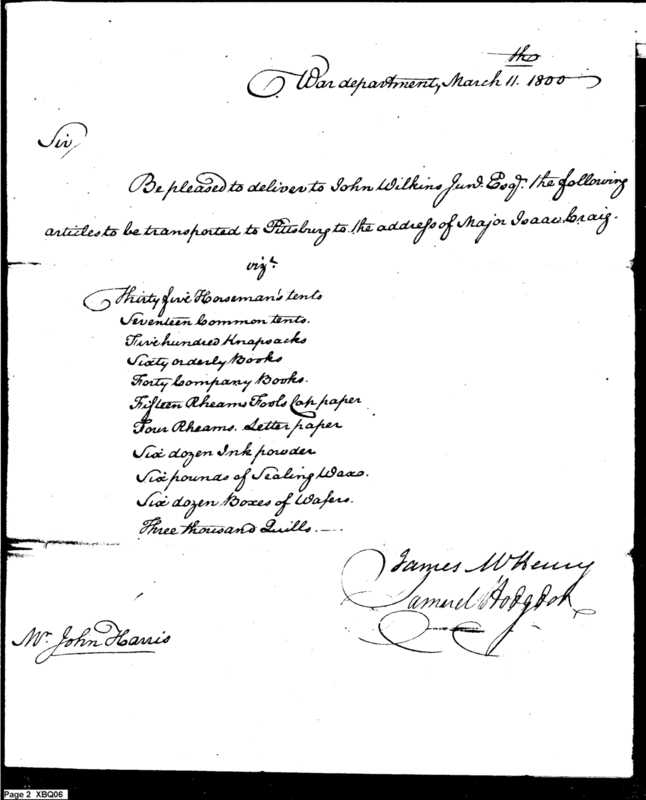 War department, March 11th. 1800
Sir,
Be pleased to deliver to John Wilkins Junr. Esqr. the following
articles to be transported to Pittsburg to the address of Major Isaac Craig.
vizt.
Thirty five Horseman's tents
Seventeen Common tents.
Five hundred Knapsacks
Sixty orderly Books
Forty Company Books.
Fifteen Rheams Fools Cap paper
Four Rheams. Letter paper
Six dozen Ink powder
Six pounds of Sealing Wax.
Six dozen Boxes of Wafers.
Three thousand Quills. —
James McHenry
Samuel Hodgdon
Mr. John Harris
Page 2 XBQ06